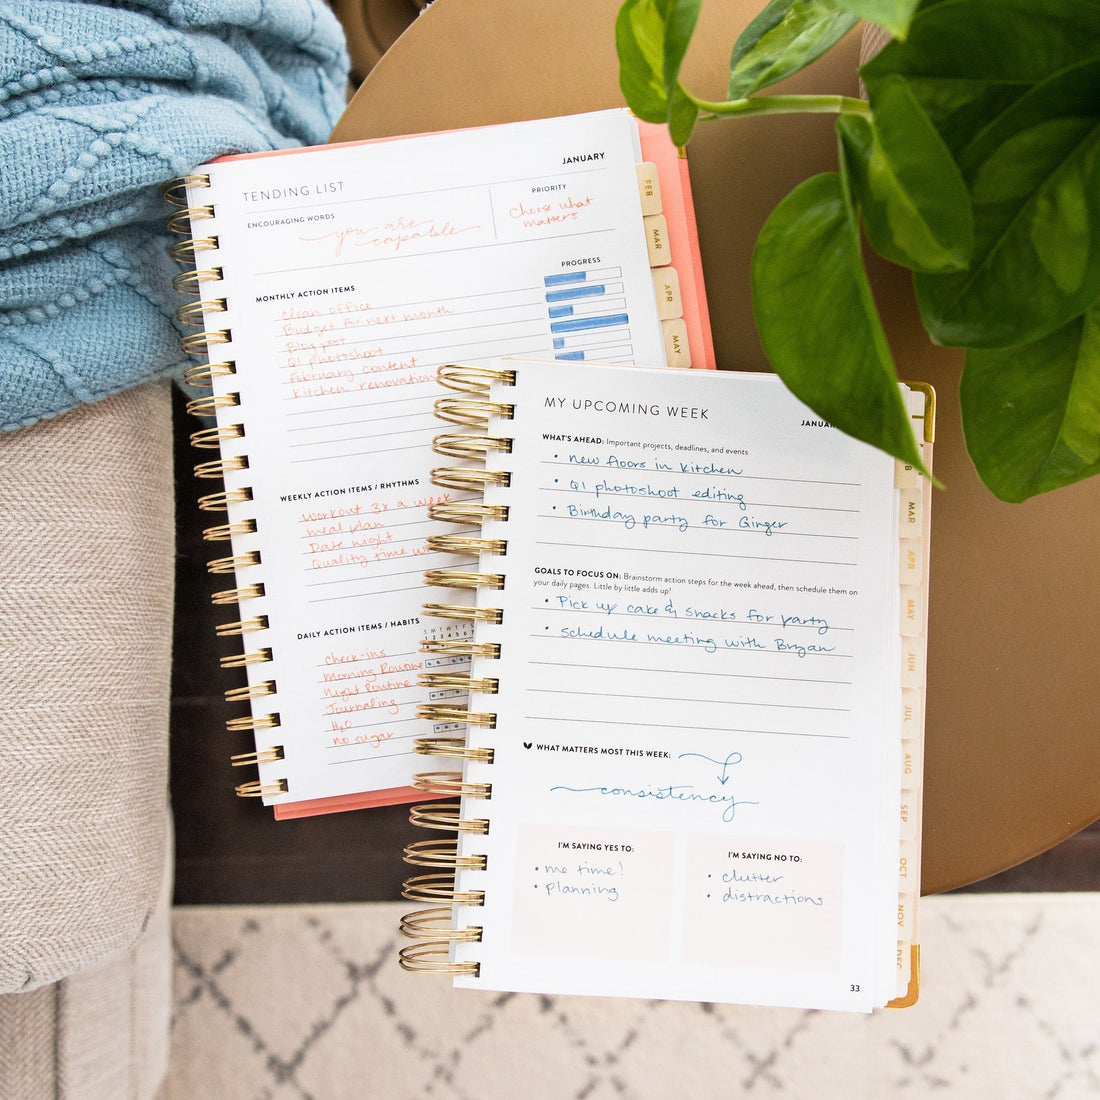 TENDING LIST
JANUARY
ENCOURAGING WORDS
you are
capable
PRIORITY
choose what
matters
MONTHLY ACTION ITEMS
PROGRESS
clean office
Budget for next month
Blog post
Q1 photoshoot
February content
Kitchen renovation
WEEKLY ACTION ITEMS / RHYTHMS
Workout 3x a week
meal plan
Date night
Quality time
DAILY ACTION ITEMS / HABITS
S M T W T F S
1 2 3 4 5 6 7
check-ins
Morning Routine
Night Routine
Journaling
H2O
no sugar
FEB
MAR
APR
MAY
MY UPCOMING WEEK
WHAT'S AHEAD: Important projects, deadlines, and events
• new floors in kitchen
• Q1 photoshoot editing
• Birthday party for Ginger
GOALS TO FOCUS ON: Brainstorm action steps for the week ahead, then schedule them on
your daily pages. Little by little adds up!
• Pick up cake & snacks for party
• schedule meeting with Bryan
WHAT MATTERS MOST THIS WEEK:
consistency
I'M SAYING YES TO:
• me time!
• planning
I'M SAYING NO TO:
• clutter
• distractions
33
MAR
APR
MAY
JUN
JUL
AUG
SEP
OCT
NOV
DEC